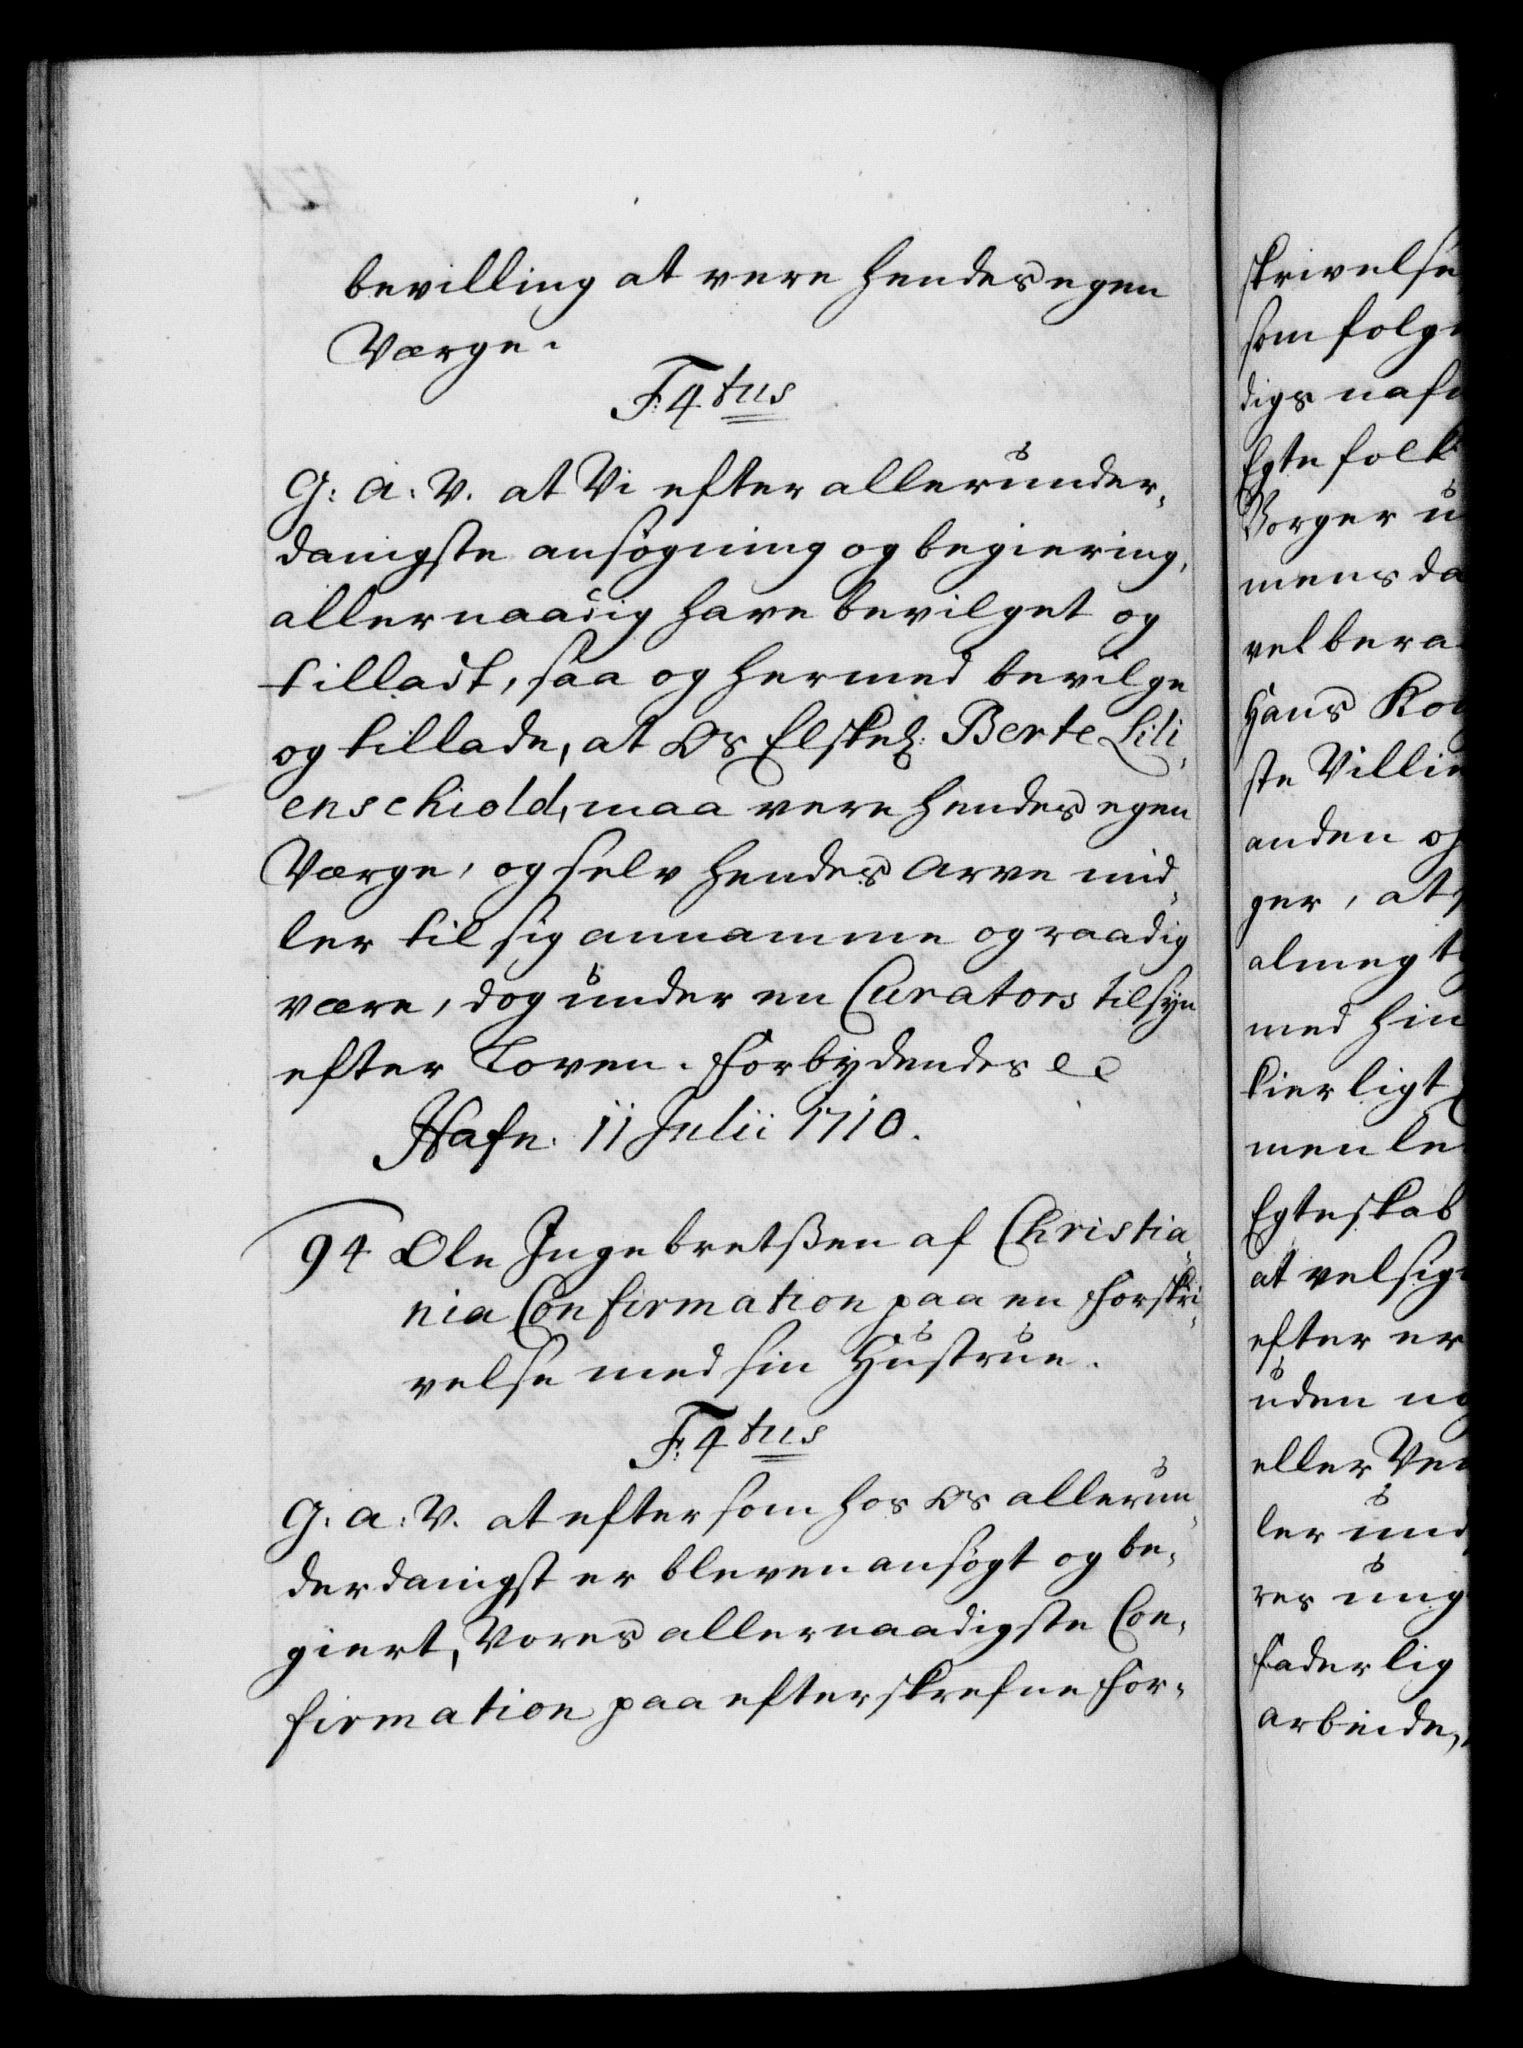 bevilling at vere hendes egen
Værge.
F: 4 tus
G: A: V. at Vi efter allerunder-
danigste ansøgning og begiering,
allernaadig have bevilget og
tilladt, saa og hermed bevilge
og tillade, at Os Elskel: Berte Lili-
enschiold, maa vere hendes egen
Værge, og selv hendes Arve mid-
ler til sig annamme og raadig
være, dog under en Curators tilsyn
efter Loven. Forbydendes ec
Hafn. 11 Julii 1710.
94 Ole Ingebretßen af Christia-
nia Confirmation paa en Forskri-
velse med sin Hustrue.
F: 4 tus
G: A: V. at eftersom hos Os allerun-
derdanigst er bleven ansøgt og be-
giert, Vores allernaadigste Con-
firmation paa efterskrefne For-
skrivelse
som følge
digs nafn
Egtefolk
Borger u
mens da
vel bera
Hans Kon
ste Villie
anden og
ger, at
almegt
med hin
kierligt
men le
Egteskab
at velsig
efter er
uden no
eller Ve
ler und
res ung
faderlig
arbeide,